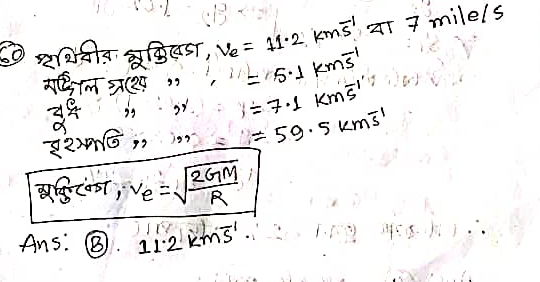 60 পৃথিবীর মুক্তিবেগ, Ve = 11.2 kms⁻¹ বা 7 mile/s
মঙ্গল গ্রহের ,, , = 5.1 kms⁻¹
বুধ ,, ,, = 7.1 kms⁻¹
বৃহস্পতি ,, ,,, = 59.5 kms⁻¹
মুক্তিবেগ, Ve = √(2GM/R)
Ans: Ⓑ. 11.2 kms⁻¹.